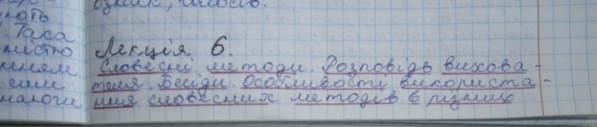 ознак, 
ють
Така
Лекція 6.
Словесні методи. Розповідь вихова-
теля. Бесіди. Особливості використа-
ння словесних методів в різних